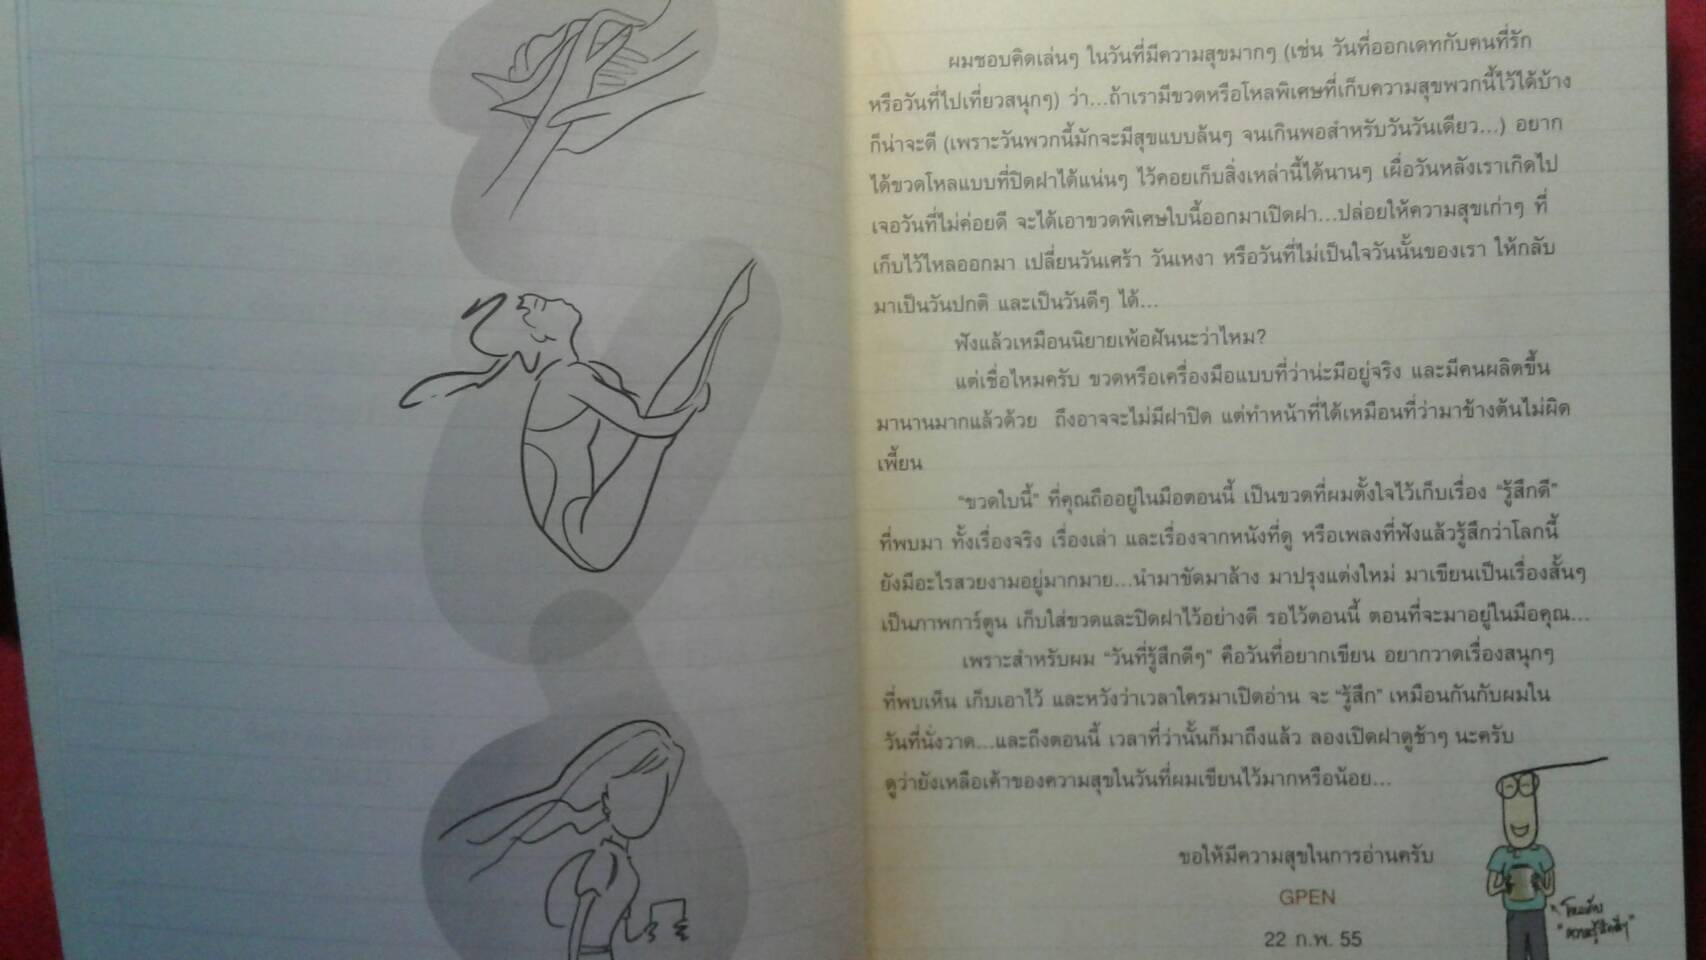 ผมชอบคิดเล่นๆ ในวันที่มีความสุขมากๆ (เช่น วันที่ออกเดทกับคนที่รัก
หรือวันที่ไปเที่ยวสนุกๆ) ว่า...ถ้าเรามีขวดหรือโหลพิเศษที่เก็บความสุขพวกนี้ไว้ได้บ้าง
ก็น่าจะดี (เพราะวันพวกนี้มักจะมีสุขแบบล้นๆ จนเกินพอสำหรับวันวันเดียว...) อยาก
ได้ขวดโหลแบบที่ปิดฝาได้แน่นๆ ไว้คอยเก็บสิ่งเหล่านี้ได้นานๆ เผื่อวันหลังเราเกิดไป
เจอวันที่ไม่ค่อยดี จะได้เอาขวดพิเศษใบนี้ออกมาเปิดฝา...ปล่อยให้ความสุขเก่าๆ ที่
เก็บไว้ไหลออกมา เปลี่ยนวันเศร้า วันเหงา หรือวันที่ไม่เป็นใจวันนั้นของเรา ให้กลับ
มาเป็นวันปกติ และเป็นวันดีๆ ได้...
ฟังแล้วเหมือนนิยายเพ้อฝันนะว่าไหม?
แต่เชื่อไหมครับ ขวดหรือเครื่องมือแบบที่ว่าน่ะมีอยู่จริง และมีคนผลิตขึ้น
มานานมากแล้วด้วย ถึงอาจจะไม่มีฝาปิด แต่ทำหน้าที่ได้เหมือนที่ว่ามาข้างต้นไม่ผิด
เพี้ยน
"ขวดใบนี้" ที่คุณถืออยู่ในมือตอนนี้ เป็นขวดที่ผมตั้งใจไว้เก็บเรื่อง "รู้สึกดี"
ที่พบมา ทั้งเรื่องจริง เรื่องเล่า และเรื่องจากหนังที่ดู หรือเพลงที่ฟังแล้วรู้สึกว่าโลกนี้
ยังมีอะไรสวยงามอยู่มากมาย...นำมาขัดมาล้าง มาปรุงแต่งใหม่ มาเขียนเป็นเรื่องสั้นๆ
เป็นภาพการ์ตูน เก็บใส่ขวดและปิดฝาไว้อย่างดี รอไว้ตอนนี้ ตอนที่จะมาอยู่ในมือคุณ...
เพราะสำหรับผม "วันที่รู้สึกดีๆ" คือวันที่อยากเขียน อยากวาดเรื่องสนุกๆ
ที่พบเห็น เก็บเอาไว้ และหวังว่าเวลาใครมาเปิดอ่าน จะ "รู้สึก" เหมือนกันกับผมใน
วันที่นั่งวาด...และถึงตอนนี้ เวลาที่ว่านั้นก็มาถึงแล้ว ลองเปิดฝาดูช้าๆ นะครับ
ดูว่ายังเหลือเค้าของความสุขในวันที่ผมเขียนไว้มากหรือน้อย...
ขอให้มีความสุขในการอ่านครับ
GPEN
22 ก.พ. 55
"ความรู้สึกดีๆ"